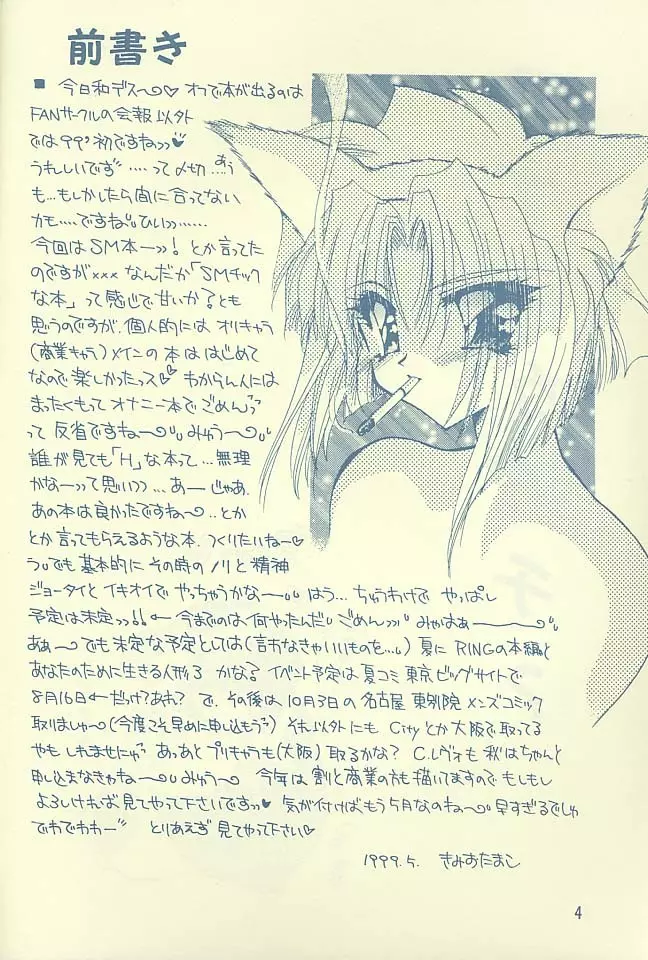 前書き
■ 今日和デス〜♡ オフで本が出るのは
FANサークルの会報以外
では99'初ですねッッ♥
うれしいです゛‥‥って〆切‥あぅ
も…もしかしたら間に合ってない
かも‥‥ですね〟ひいッッ‥‥‥
今回はSM本ーッッ! とか言ってた
のですが××× なんだか「SMチック
な本」って感じで甘いか? とも
思うのですが、個人的には オリキャラ
(商業キャラ)メインの本は はじめて
なので楽しかったっス♡ わからん人には
まったくもって オナニー本でごめんっっ
って 反省ですね〜〟みゅう〜〟
誰が見ても「H」な本って…無理
かなーって思いッッ…あーじゃぁ、
あの本は良かったですね〜‥とか
とか言ってもらえるような本、つくりたいね〜♡
う〟でも 基本的に その時のノリと精神
ジョータイとイキオイでやっちゃうかな〜〟 はう… ちゅうわけで やっぱし
予定は未定ッッ!! ← 今までのは何やったんだ〟ごめんッッ みゃはぁー〟
あぁ〜 でも未定な予定としては(言わなきゃいいものを…) 夏に RINGの本編と
あなたのために生きる人形3 かな? イベント予定は夏コミ 東京ビッグサイトで
8月16日←だっけ?あれ? で、その後は10月3日の 名古屋 東別院 メンズコミック
取りましゅ〜(今度こそ早めに申し込もうっ) それ以外にも Cityとか大阪で取ってる
やも しれませにゃ〟 あっあと プリキャラも(大阪) 取るかな? C.レヴォも 秋はちゃんと
申し込まなきゃね〜〟みゅう〜 今年は 割と商業の方も描いてますので もしもし
よろしければ 見てやって下さいですッッ♥ 気が付けばもう5月なのね〜〟早すぎるでしゅ
でわでわわー〟 とりあえず 見てやって下さい♡
1999.5. きみおたまこ
4